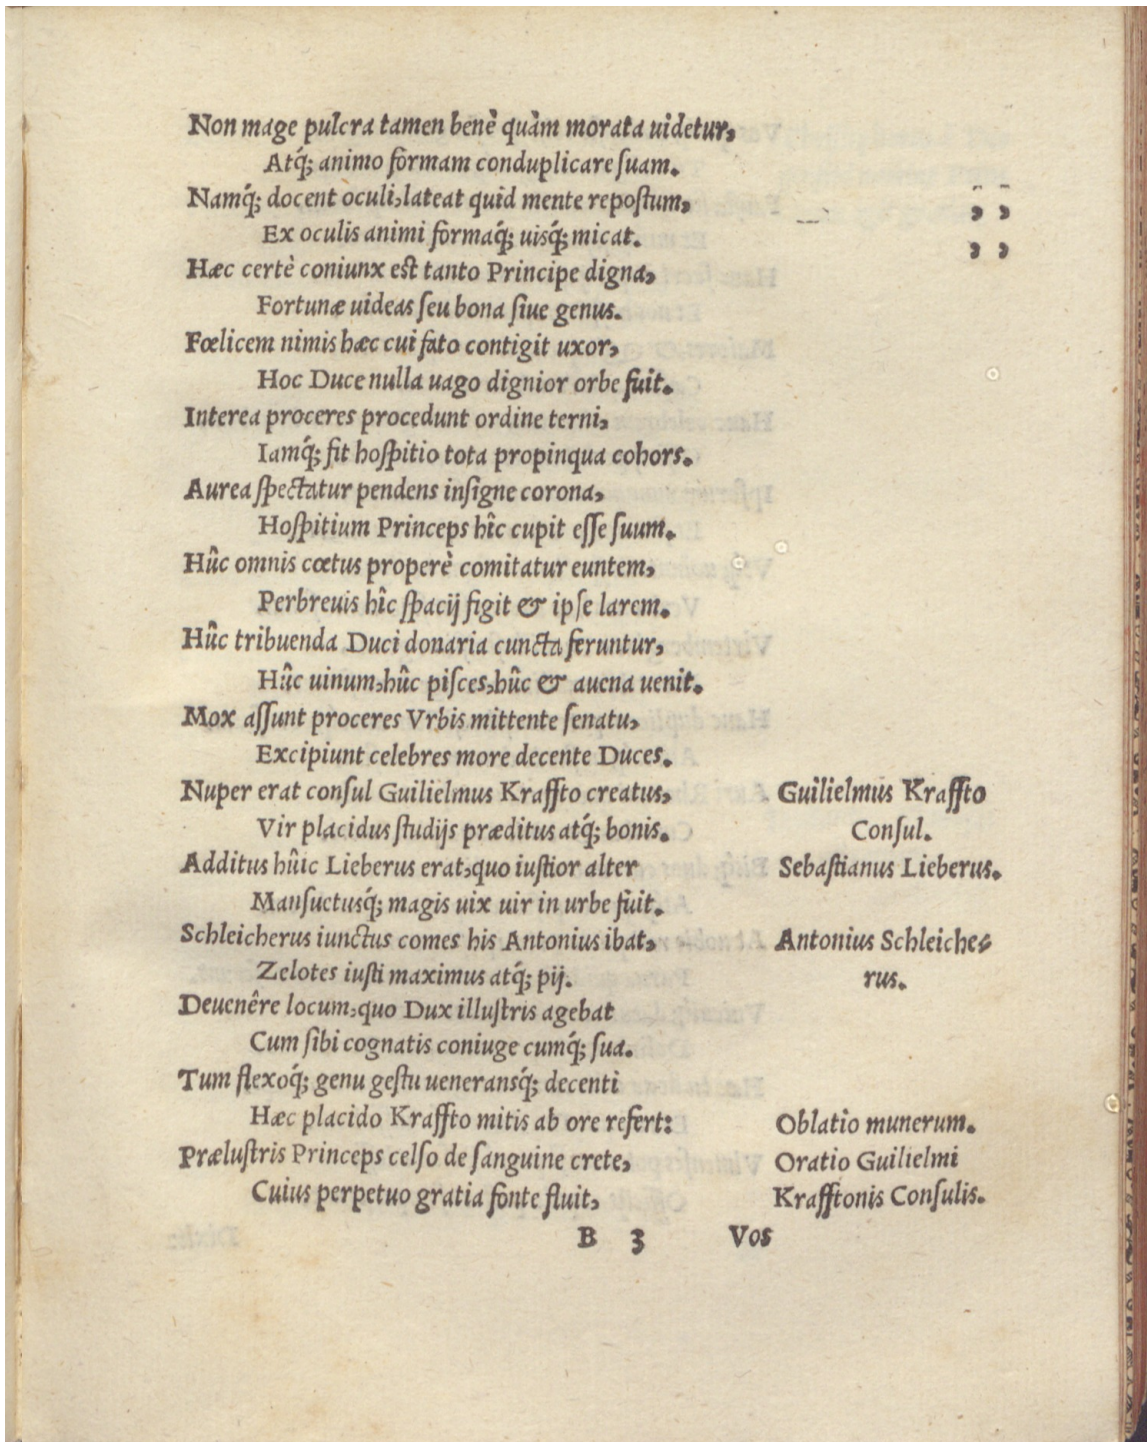 Non mage pulcra tamen benè quàm morata uidetur,
Atq́; animo formam conduplicare ſuam.
Namq́; docent oculi, lateat quid mente repoſtum,
Ex oculis animi formaq́; uisq́; micat.
Hæc certè coniunx eſt tanto Principe digna,
Fortunæ uideas ſeu bona ſiue genus.
Fœlicem nimis hæc cui fato contigit uxor,
Hoc Duce nulla uago dignior orbe fuit.
Interea proceres procedunt ordine terni,
Iamq́; fit hoſpitio tota propinqua cohors.
Aurea ſpectatur pendens inſigne corona,
Hoſpitium Princeps hîc cupit eſſe ſuum.
Hûc omnis cœtus properè comitatur euntem,
Perbreuis hîc ſpacij figit & ipſe larem.
Hûc tribuenda Duci donaria cuncta feruntur,
Hûc uinum, hûc piſces, hûc & auena uenit.
Mox aſſunt proceres Vrbis mittente ſenatu,
Excipiunt celebres more decente Duces.
Nuper erat conſul Guilielmus Kraffto creatus,
Guilielmus Kraffto
Vir placidus ſtudijs præditus atq́; bonis.
Conſul.
Additus hûic Lieberus erat, quo iuſtior alter
Sebaſtianus Lieberus.
Manſuetusq́; magis uix uir in urbe fuit.
Schleicherus iunctus comes his Antonius ibat,
Antonius Schleiche⸗
Zelotes iuſti maximus atq́; pij.
rus.
Deuenêre locum, quo Dux illuſtris agebat
Cum ſibi cognatis coniuge cumq́; ſua.
Tum flexoq́; genu geſtu ueneransq́; decenti
Hæc placido Kraffto mitis ab ore refert:
Oblatio munerum.
Præluſtris Princeps celſo de ſanguine crete,
Oratio Guilielmi
Cuius perpetuo gratia fonte fluit,
Krafftonis Conſulis.
B 3
Vos